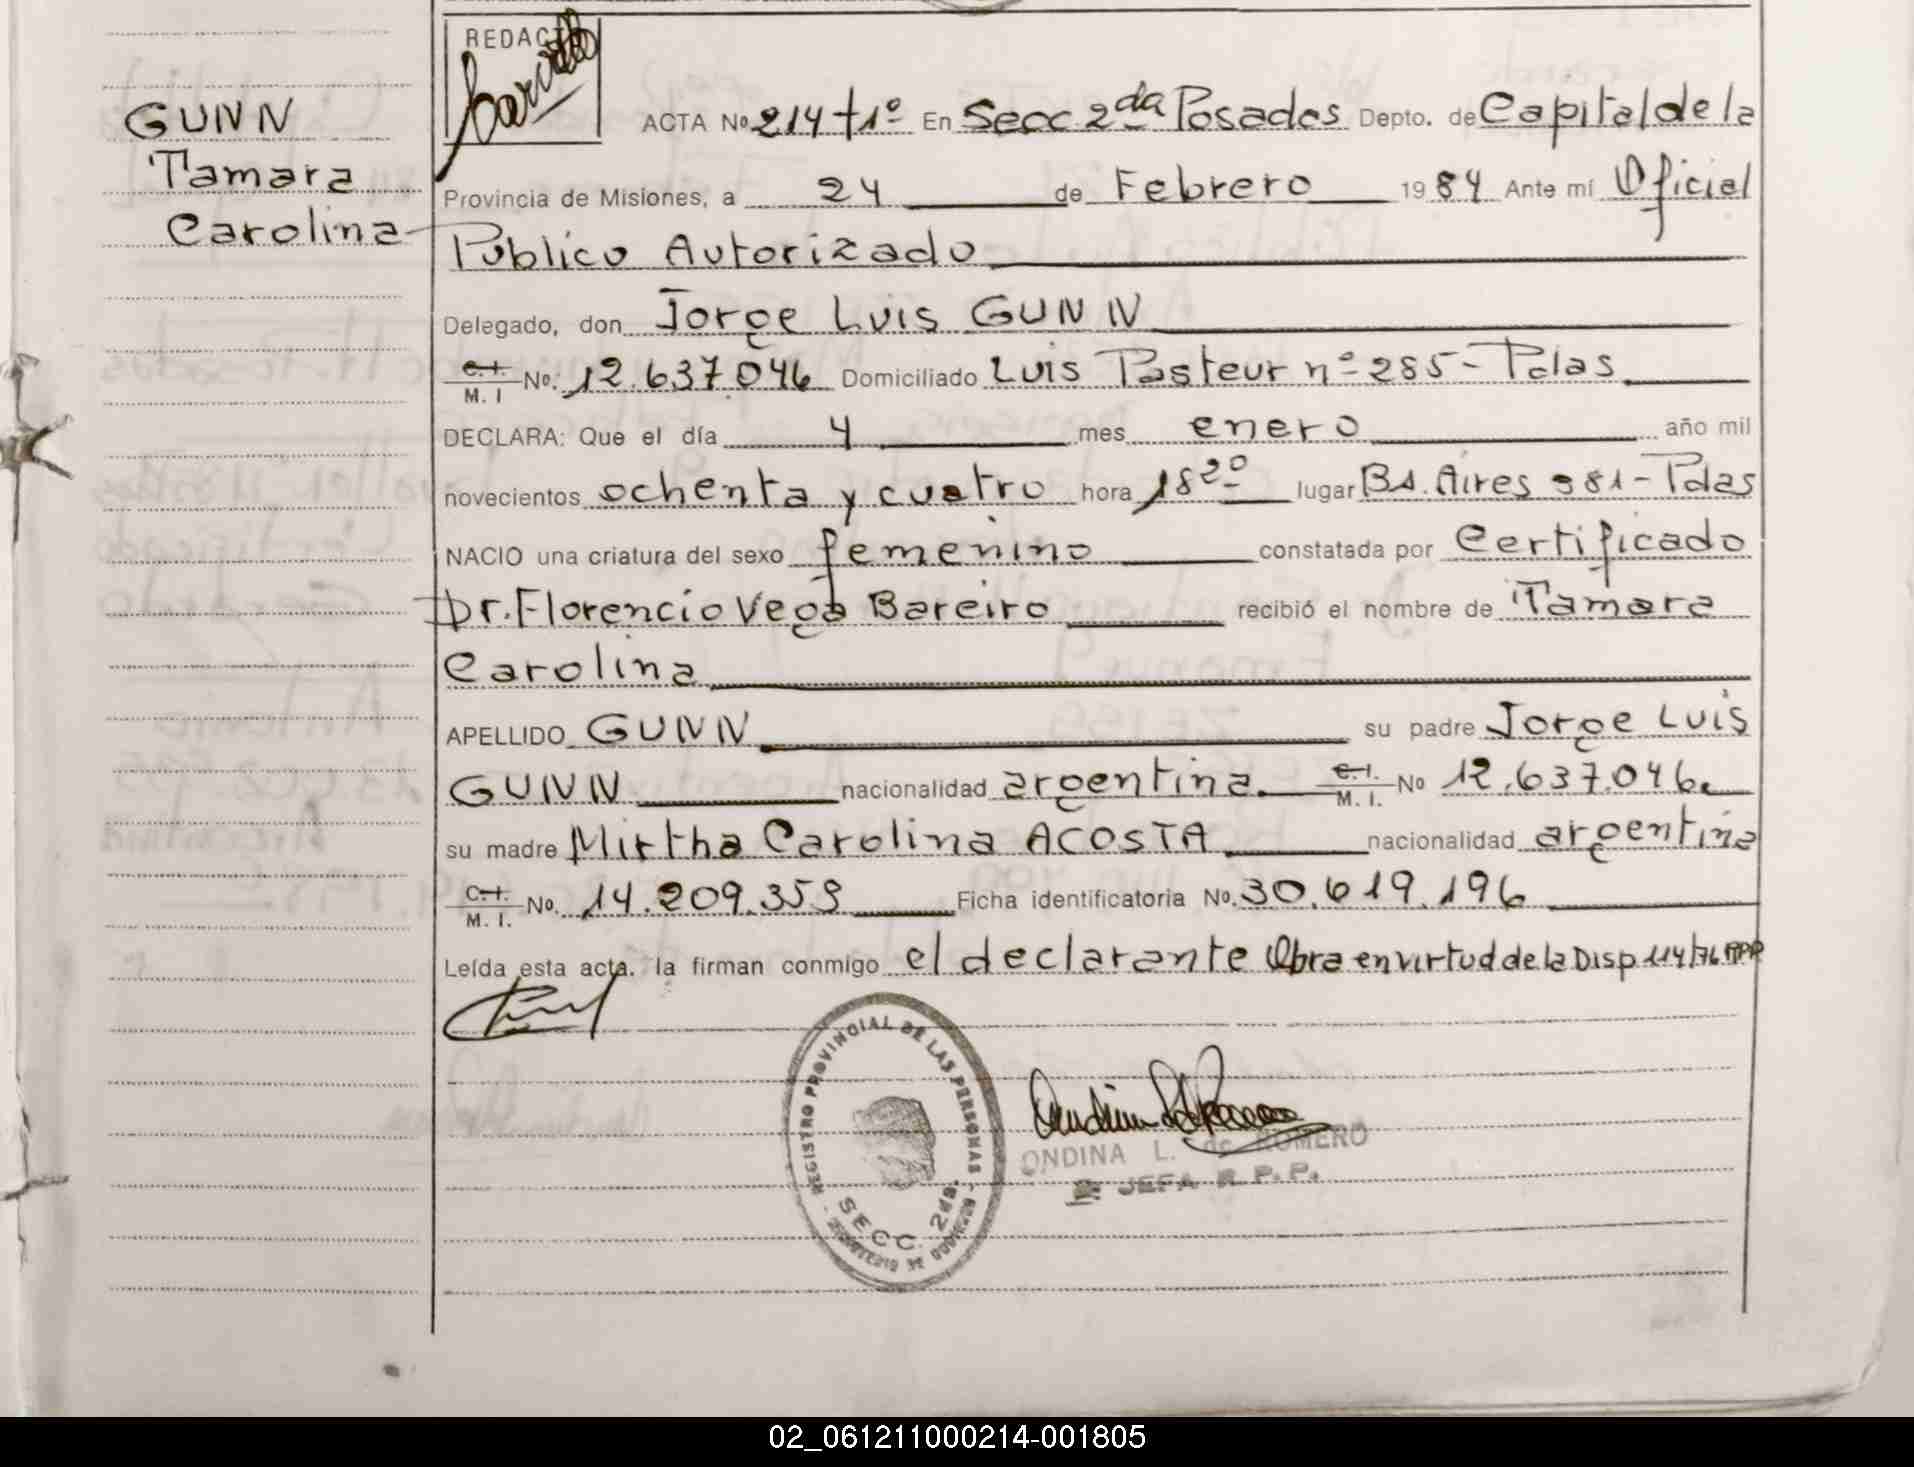 REDACTO
GUNN
Tamara
Carolina
ACTA Nº 214 t1º En Secc 2da Posadas Depto. de Capital de la
Provincia de Misiones, a 24 de Febrero 1984 Ante mí Oficial
Público Autorizado
Delegado, don Jorge Luis GUNN
C.I. M. I No. 12.637.046 Domiciliado Luis Pasteur nº 285 - Pdas
DECLARA: Que el día 4 mes enero año mil
novecientos ochenta y cuatro hora 18 20 lugar Bs. Aires 981 - Pdas
NACIO una criatura del sexo femenino constatada por Certificado
Dr. Florencio Vega Bareiro recibió el nombre de Tamara
Carolina
APELLIDO GUNN su padre Jorge Luis
GUNN nacionalidad argentina. C.I. M. I. Nº 12.637.046.
su madre Mirtha Carolina ACOSTA nacionalidad argentina
C.I. M. I. No. 14.209.359 Ficha identificatoria No. 30.619.196
Leída esta acta, la firman conmigo el declarante Obra en virtud de la Disp 114/76 RPP
REGISTRO PROVINCIAL DE LAS PERSONAS
SECC. 2da.
ONDINA L. de ROMERO
JEFA R.P.P.
02_061211000214-001805